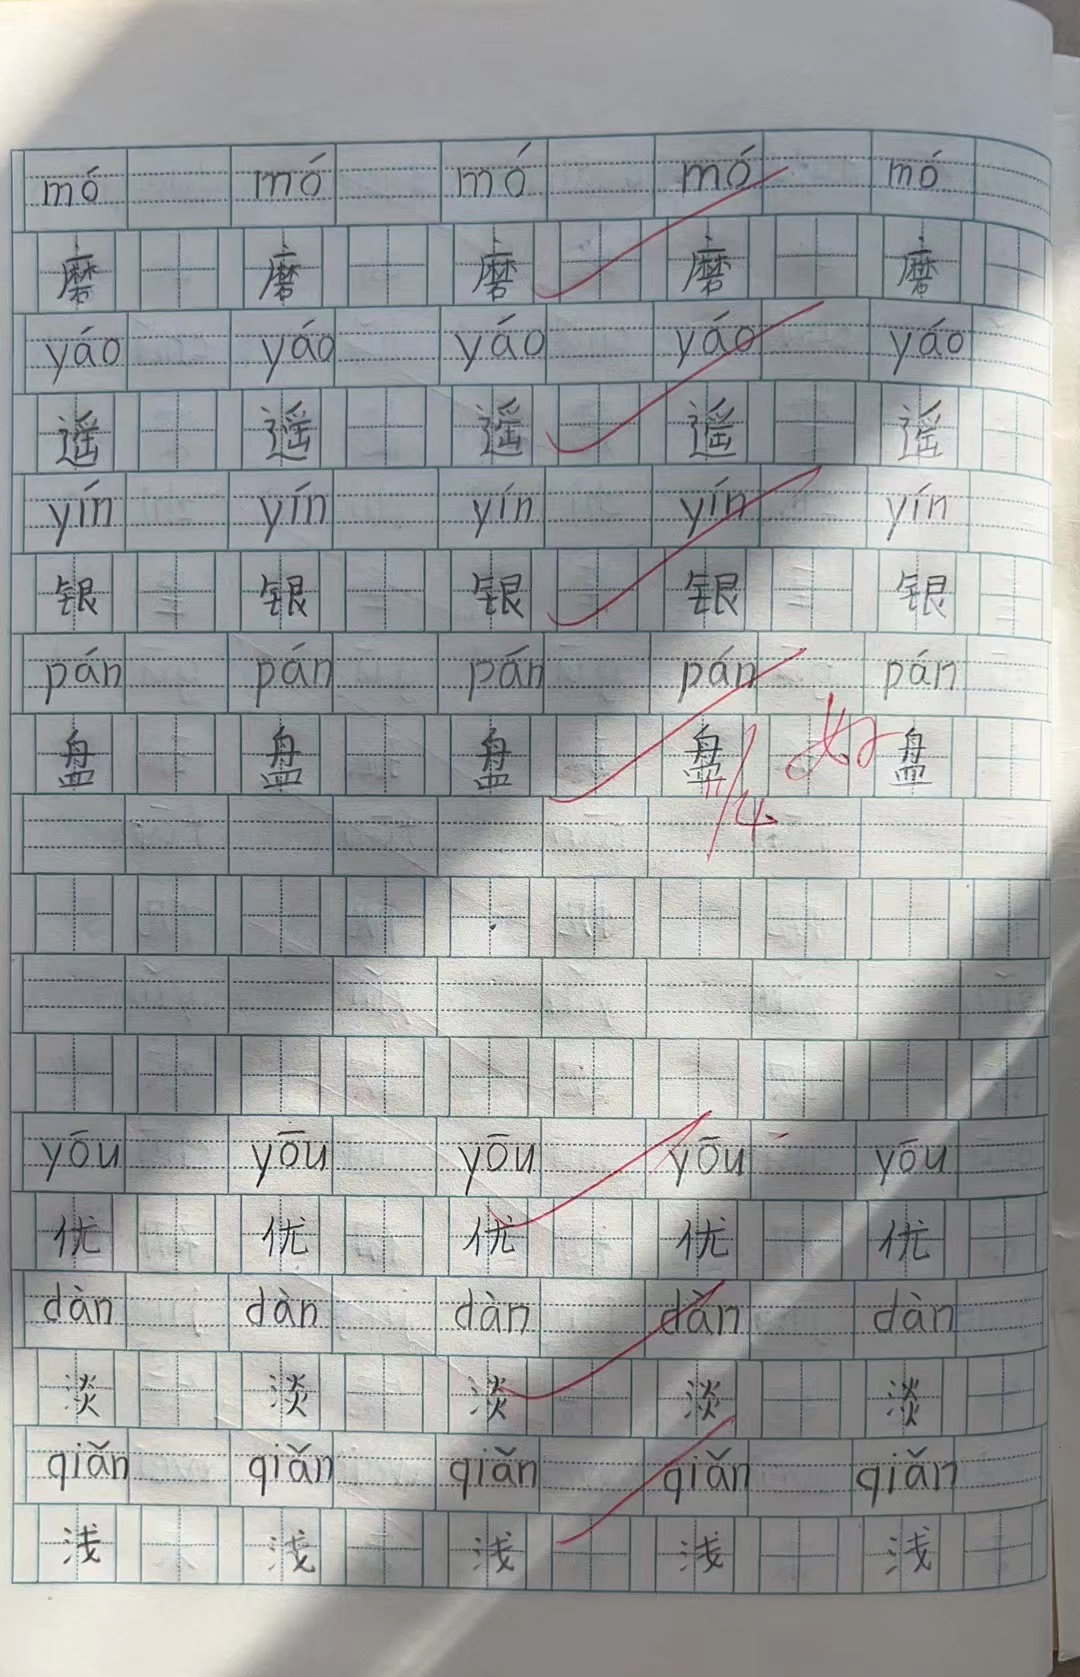 mó mó mó mó mó
磨 磨 磨 磨 磨
yáo yáo yáo yáo yáo
遥 遥 遥 遥 遥
yín yín yín yín yín
银 银 银 银 银
pán pán pán pán pán
盘 盘 盘 盘 盘
好
yōu yōu yōu yōu yōu
优 优 优 优 优
dàn dàn dàn dàn dàn
淡 淡 淡 淡 淡
qiǎn qiǎn qiǎn qiǎn qiǎn
浅 浅 浅 浅 浅